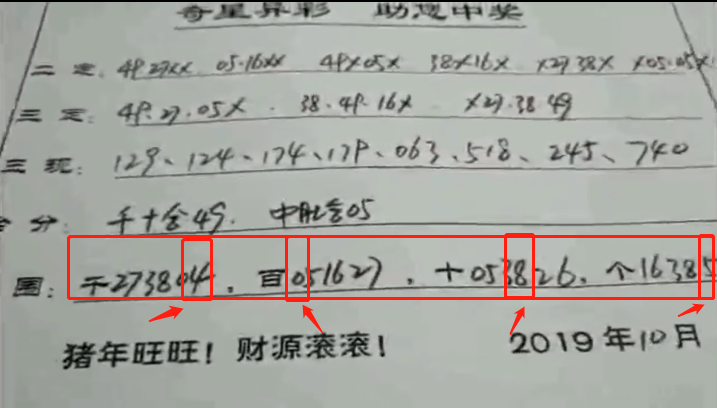 奇星异彩 助您中奖
二定: 49.27XX 05.16XX 49X05X 38X16X X27.38X X05.05X
三定: 49.27.05X. 38.49.16X X27.38.49
三现: 129、124、174、179、063、518、245、740
合分: 千十合49. 中肚含05
围: 千273804. 百051627. 十053826. 个16385
猪年旺旺! 财源滚滚! 2019年10月